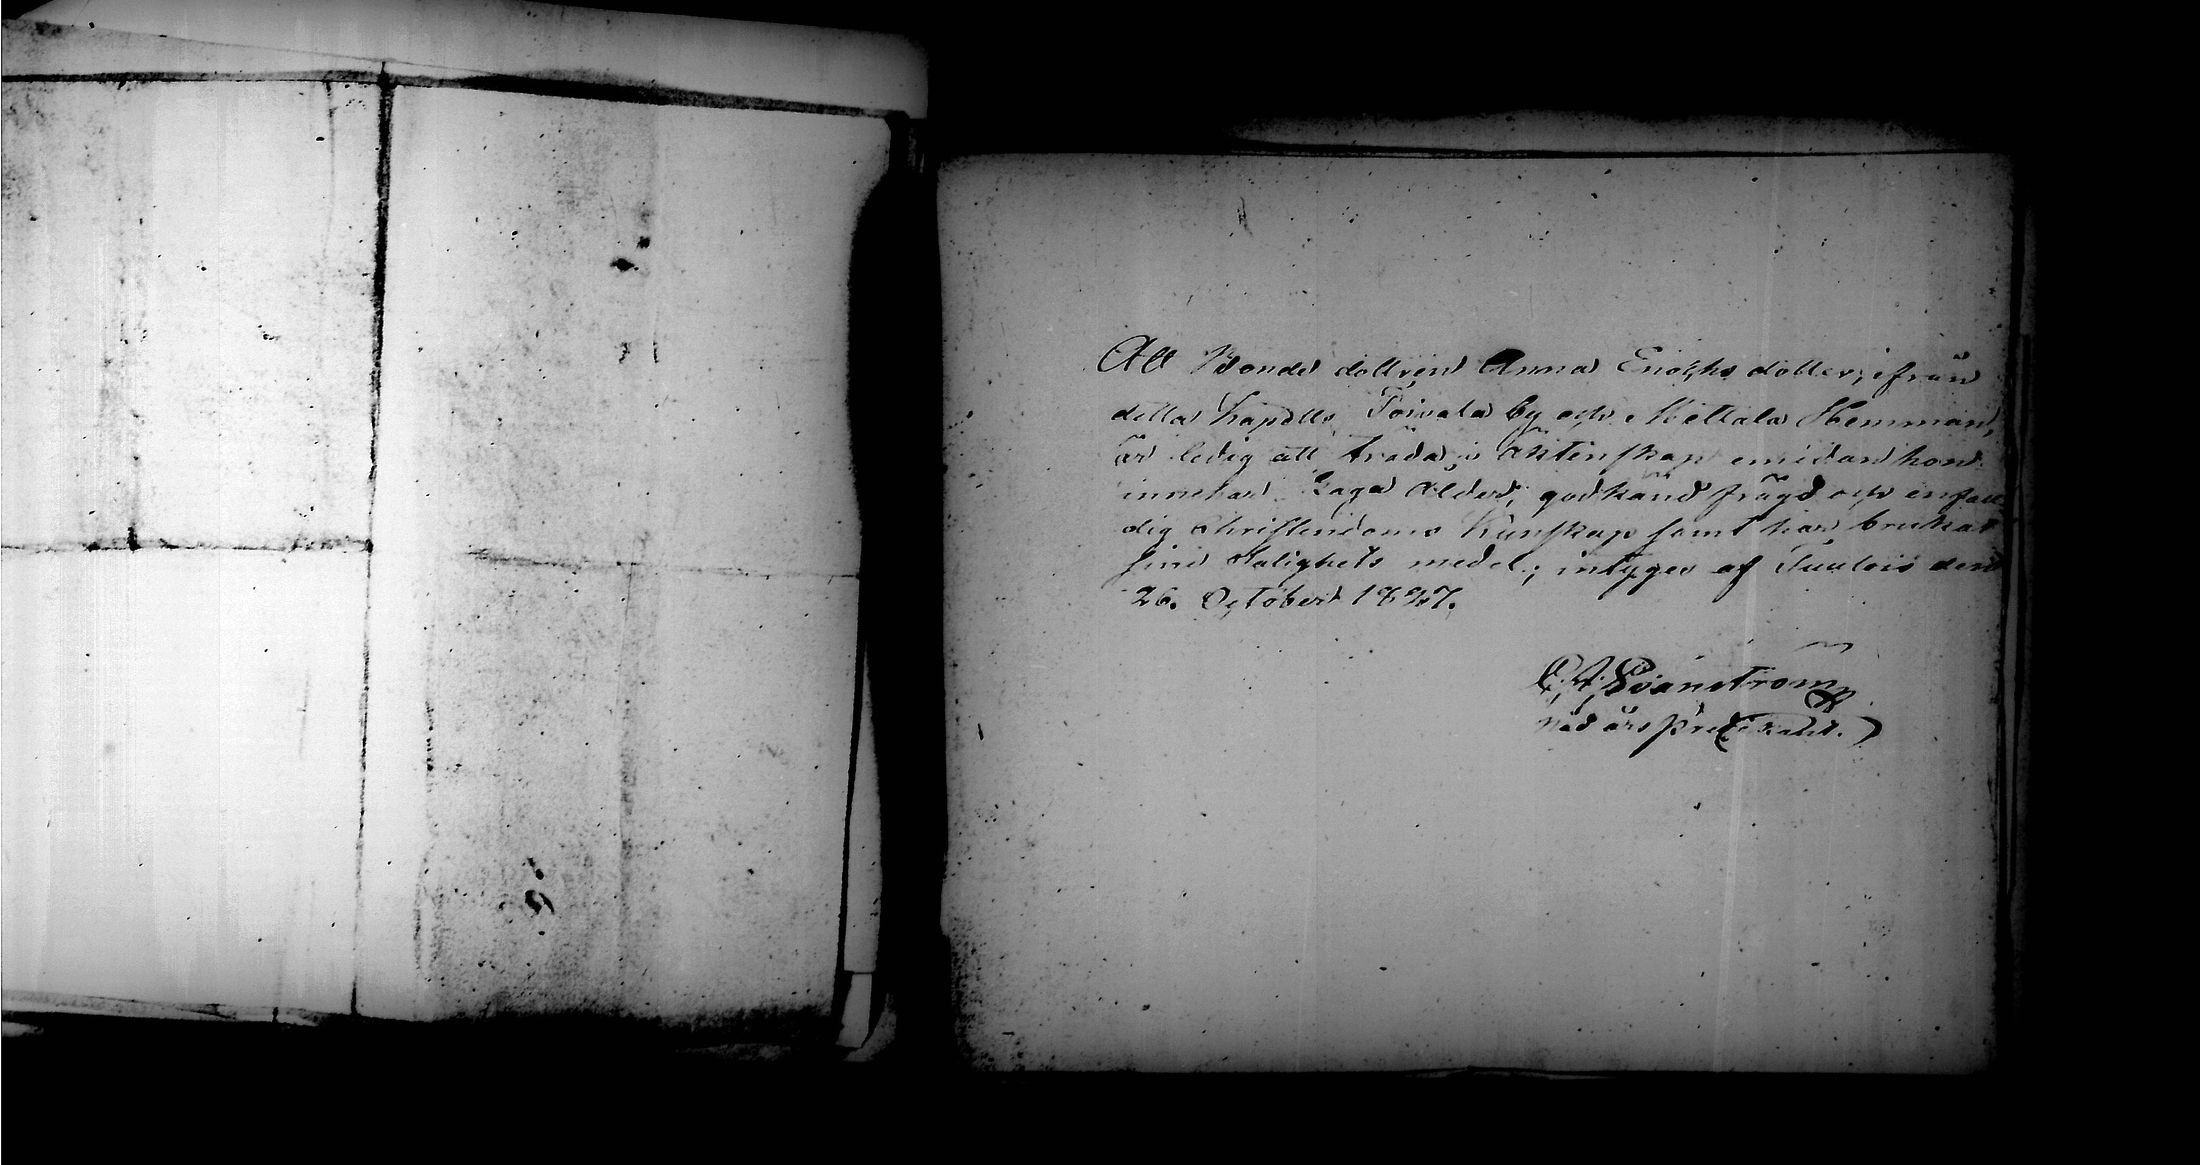 Att Bonde dottren Anna Enochs dotter, ifrån
detta Kapells Toivala by och Mettala Hemman,
är ledig att träda i äktenskap emedan hon
innehar Laga ålder, godkänd frägd och enfal
dig Christendoms Kunskap samt har brukat
sine Salighets medel; intyger af Tuulois den
26. October 1847.
Svanström
Nådårs Predikant.